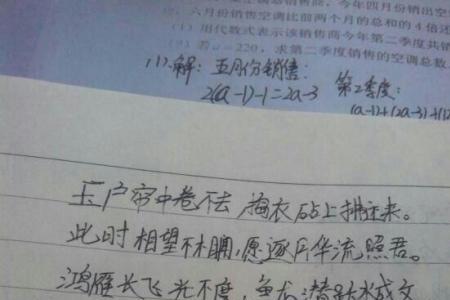 空调销售商，今年四月份销出空
六月份销售空调比前两个月的总和的4倍还
(1) 用代数式表示该销售商今年第二季度共销
(2) 若a=220，求第二季度销售的空调总数
(1)解：五月份销售：
2(a-1)-1=2a-3 第2季度：
(a-1)+(2a-3)+
玉户帘中卷不去，捣衣砧上拂还来。
此时相望不相闻，愿逐月华流照君。
鸿雁长飞光不度，鱼龙潜跃水成文